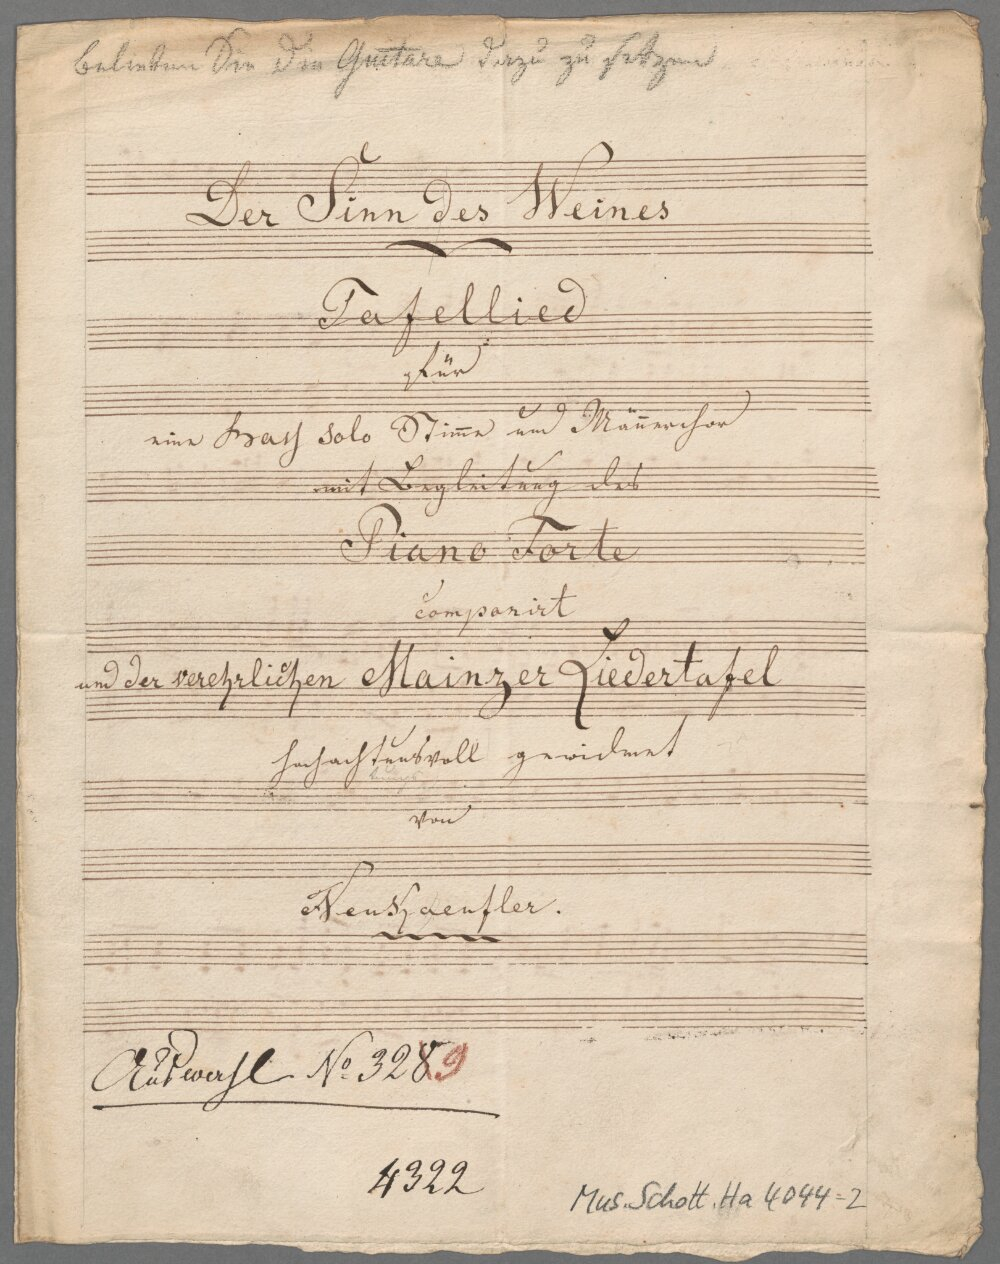 belieben Sie die Guitare dazu zu setzen
Der Sinn des Weines
Tafellied
für
eine Bass solo Stim̅e und Män̅erchor
mit Begleitung des
Piano Forte
componirt
und der verehrlichen Mainzer Liedertafel
hochachtunsvoll gewidmet
von
Neushaeufler.
Auswahl No. 328 9
4322
Mus. Schott. Ha 4044-2